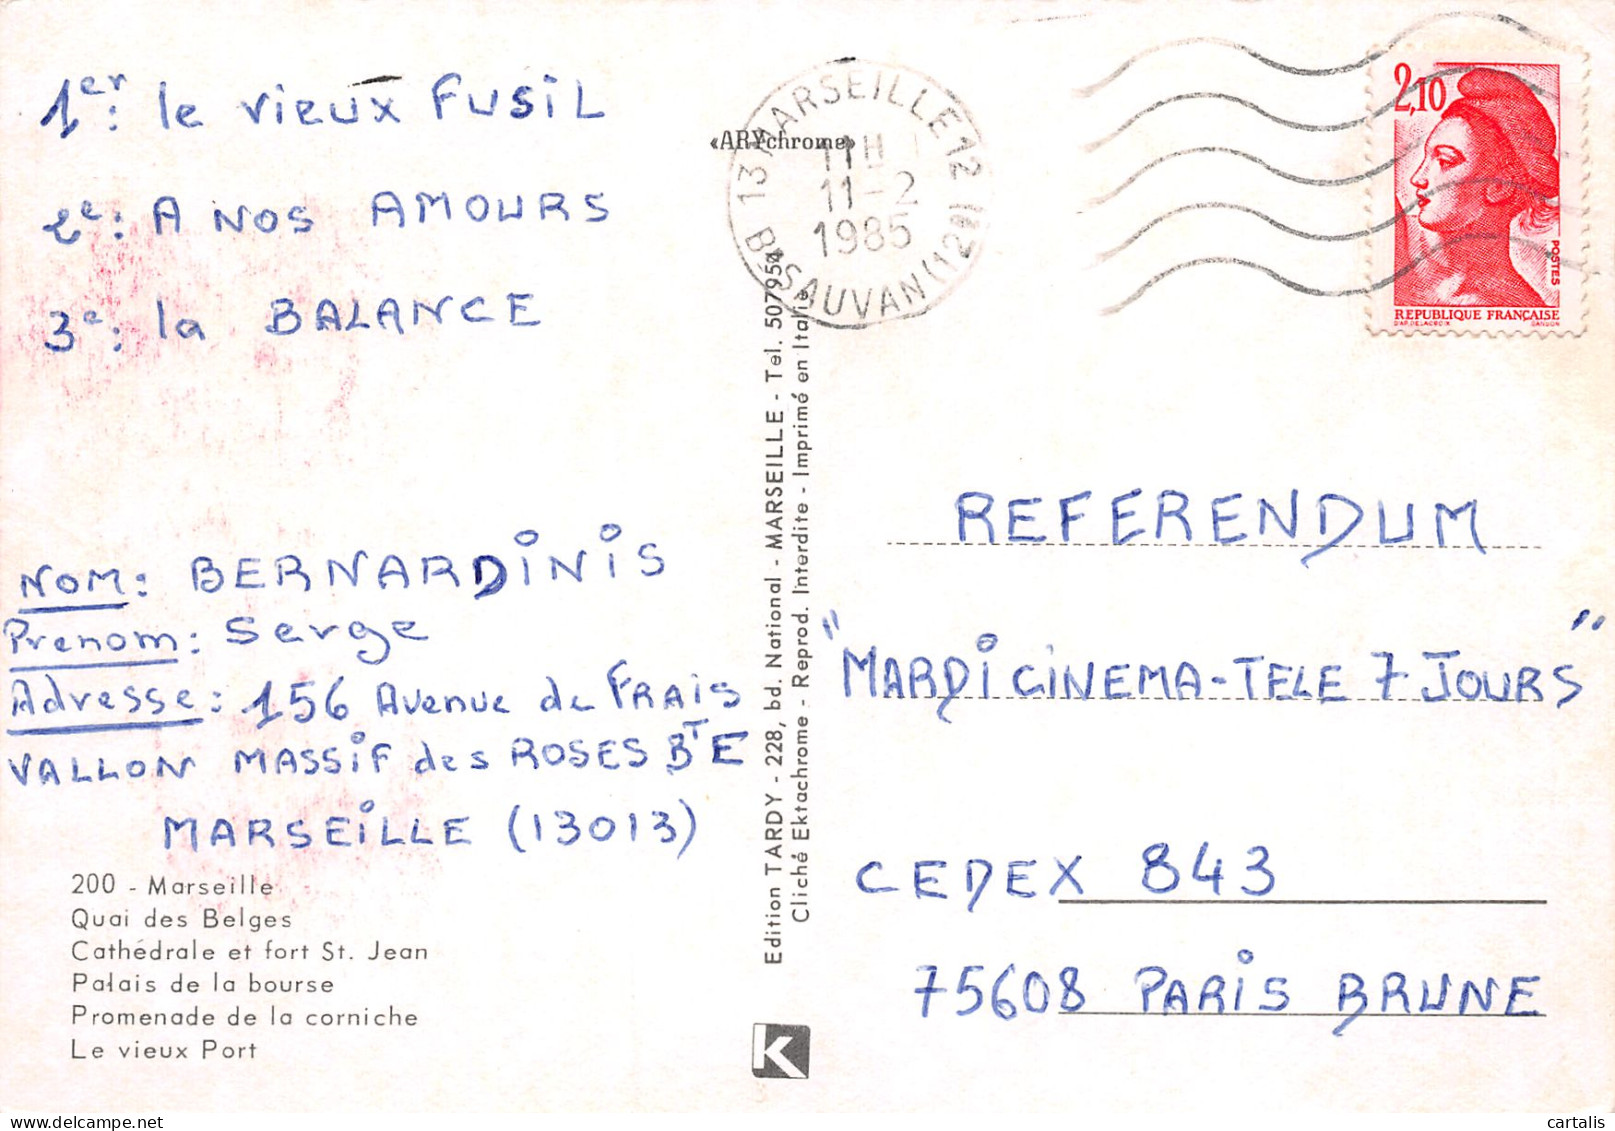 1er: le vieux FUSIL
2e: A NOS AMOURS
3e: la BALANCE
NOM: BERNARDINIS
Prenom: Serge
Adresse: 156 Avenue de FRAIS
VALLON MASSIF des ROSES BT E
MARSEILLE (13013)
200 - Marseille
Quai des Belges
Cathédrale et fort St. Jean
Palais de la bourse
Promenade de la corniche
Le vieux Port
«ARYchrome»
13 MARSEILLE 12
11H
11-2
1985
BD SAUVAN (12E)
Edition TARDY - 228, bd. National - MARSEILLE - Tel. 507954
Cliché Ektachrome - Reprod. Interdite - Imprimé en Italie
K
2,10
POSTES
REPUBLIQUE FRANÇAISE
D'AP. DELACROIX GANDON
REFERENDUM
"MARDI CINEMA-TELE 7 JOURS"
CEDEX 843
75608 PARIS BRUNE
cartalis